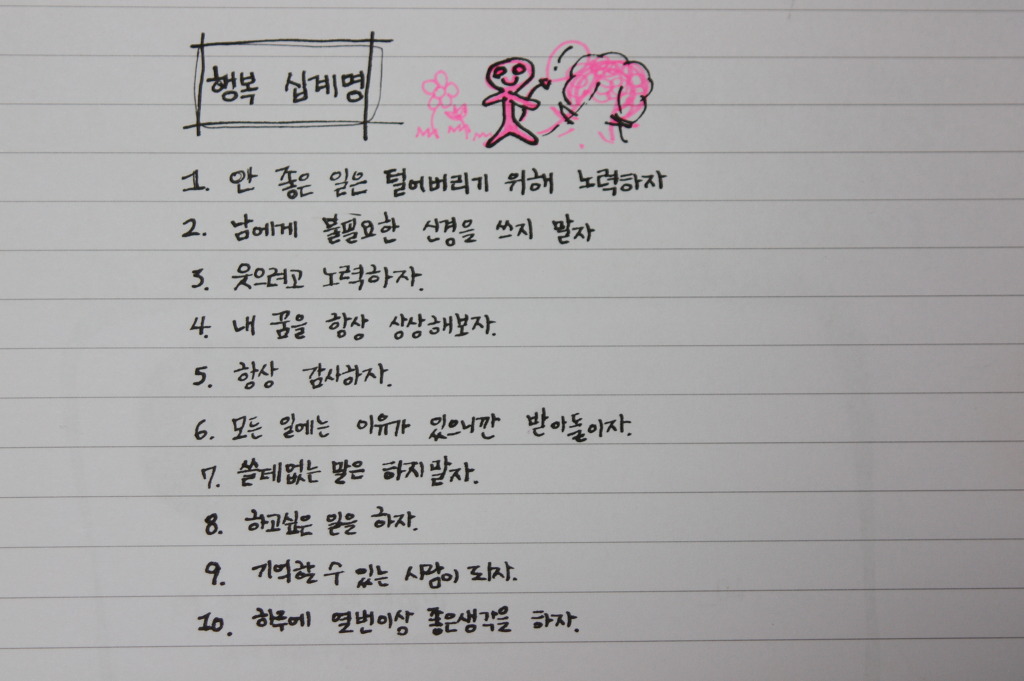 행복 십계명
1. 안 좋은 일은 털어버리기 위해 노력하자
2. 남에게 불필요한 신경을 쓰지 말자
3. 웃으려고 노력하자.
4. 내 꿈을 항상 상상해보자.
5. 항상 감사하자.
6. 모든 일에는 이유가 있으니깐 받아돌이자.
7. 쓸데없는 말은 하지말자.
8. 하고싶은 일을 하자.
9. 기억할 수 있는 사람이 되자.
10. 하루에 열번이상 좋은생각을 하자.